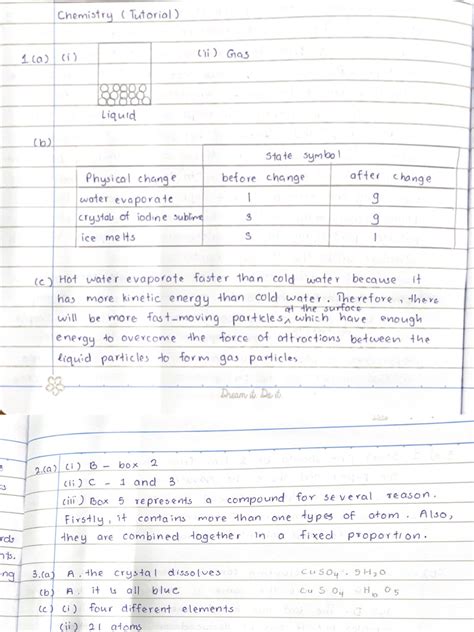 Chemistry (Tutorial)
1.(a) (i) (ii) Gas
Liquid
(b)
State symbol
Physical change before change after change
water evaporate l g
crystals of iodine sublime s g
ice melts s l
(c) Hot water evaporate faster than cold water because it
has more kinetic energy than cold water. Therefore, there
will be more fast-moving particles at the surface which have enough
energy to overcome the force of attractions between the
liquid particles to form gas particles
Dream it. Do it.
2.(a) (i) B - box 2
(ii) C - 1 and 3
(iii) Box 5 represents a compound for several reason.
Firstly, it contains more than one types of atom. Also,
they are combined together in a fixed proportion.
3.(a) A. the crystal dissolves CuSO4 . 5H2O
(b) A. it is all blue CuSO4 H10O5
(c) (i) four different elements
(ii) 21 atoms